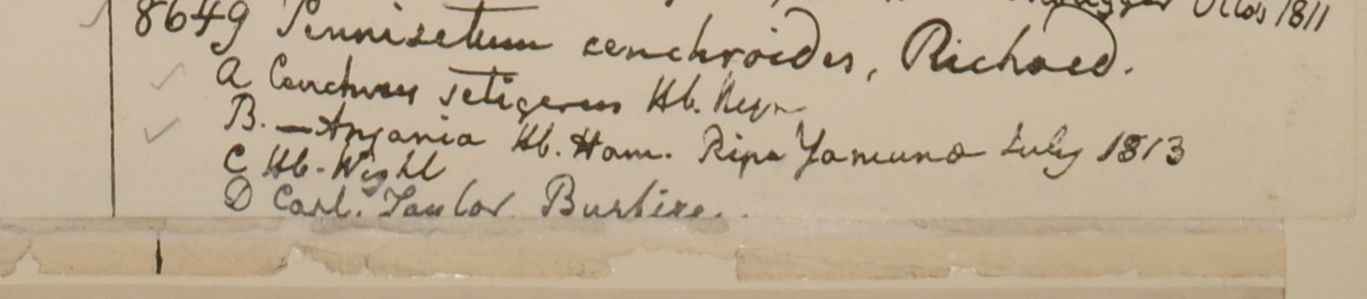 Octob 1811
8649 Pennisetum cenchroides, Richard.
A Cenchrus setigerus Hb. Heyn
B. — Anjania Hb. Ham. Ripa Yamuna July 1813
C Hb. Wight
D Capt. Taylor Bushire.